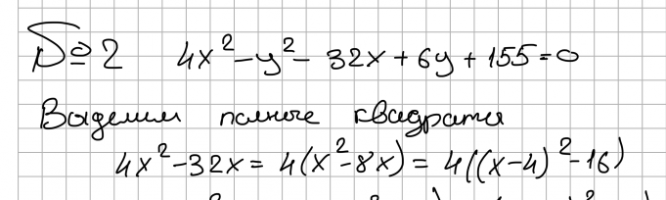 № 2 4x² - y² - 32x + 6y + 155 = 0
Выделим полные квадраты
4x² - 32x = 4(x² - 8x) = 4((x-4)² - 16)